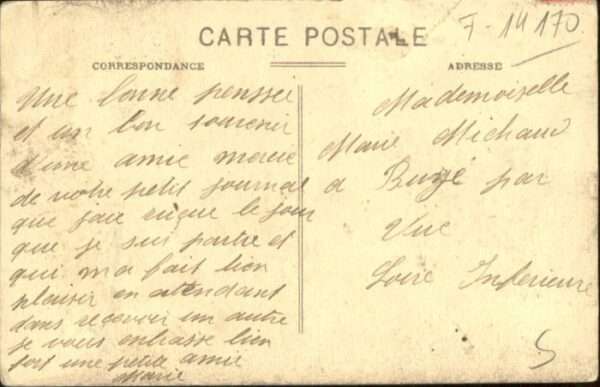 7-14170
CARTE POSTALE
CORRESPONDANCE
ADRESSE
Une bonne pensser
et un bon souvenir
d'une amie
de votre petit journal
que le jour
que je sui partie et
qui ma fait bien
plaisir en attendant
dans recevoir un autre
je vous enbrasse bien
fort une petite amie
Marie
Mademoiselle
Marie Michaud
a par
Vue
Loire Inferieure